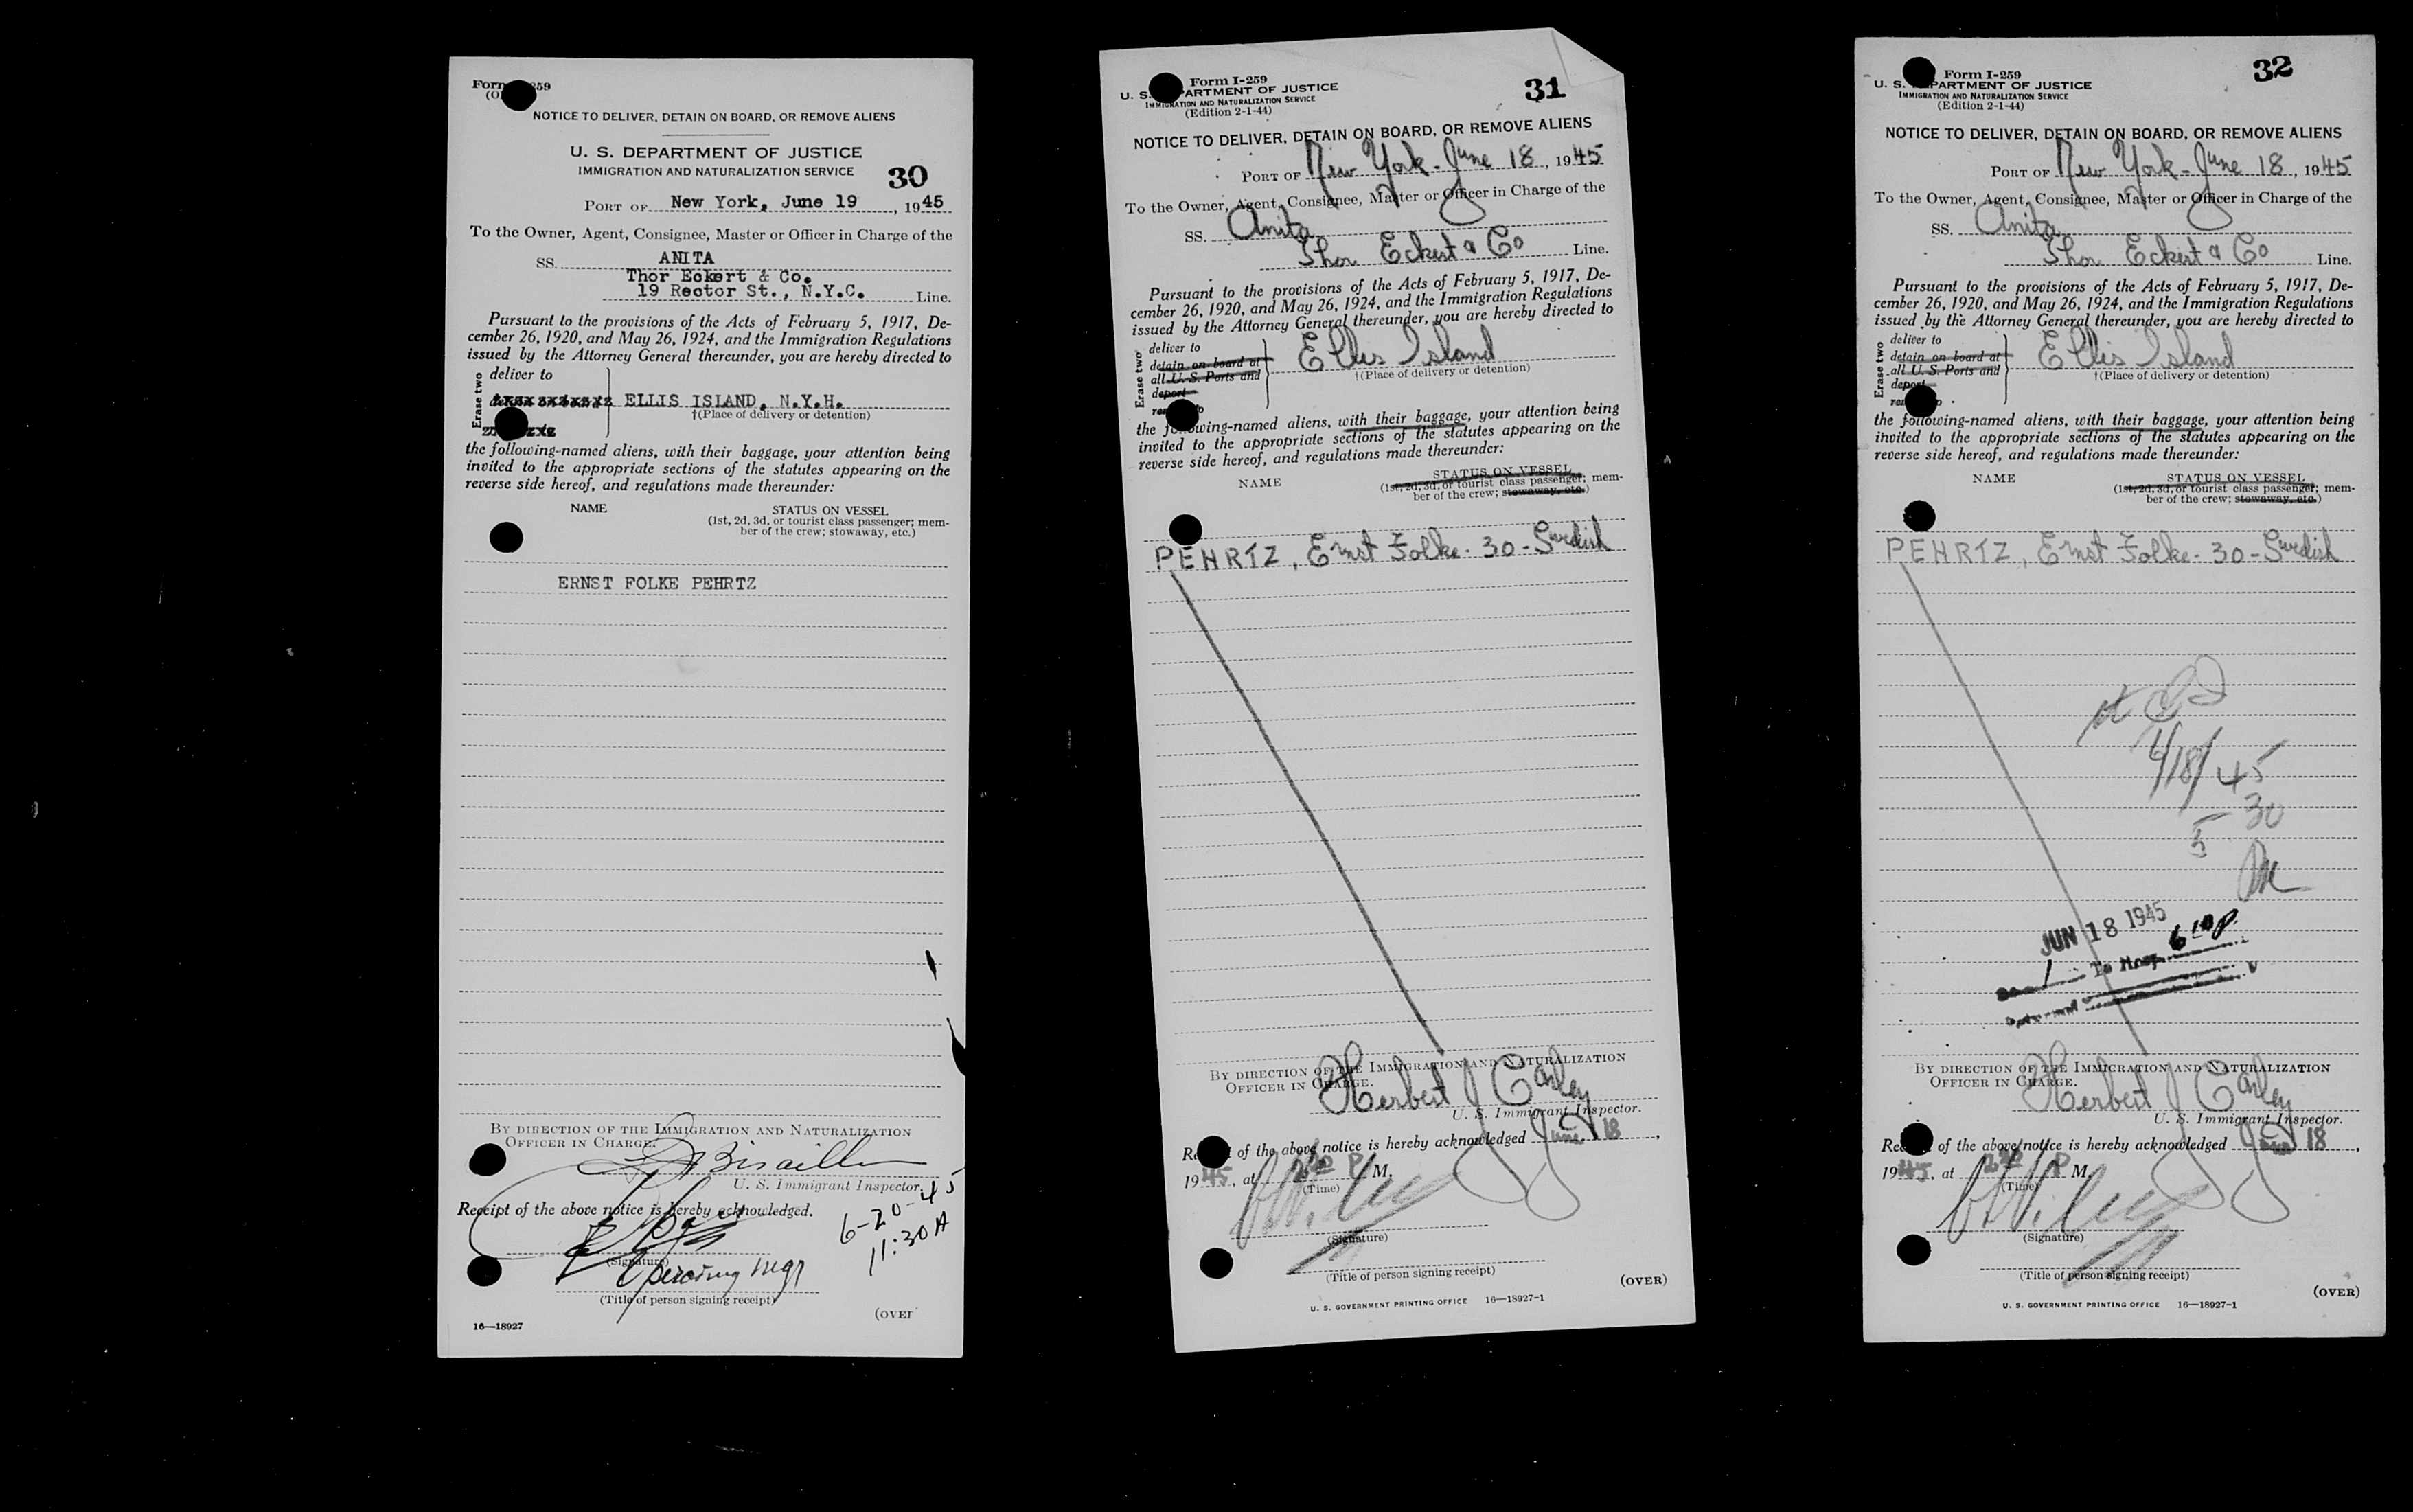 NOTICE TO DELIVER, DETAIN ON BOARD, OR REMOVE ALIENS
U. S. DEPARTMENT OF JUSTICE
IMMIGRATION AND NATURALIZATION SERVICE
30
PORT OF New York, June 19, 1945
To the Owner, Agent, Consignee, Master or Officer in Charge of the
SS. ANITA
Thor Eckert & Co.
19 Rector St., N.Y.C. Line.
Pursuant to the provisions of the Acts of February 5, 1917, De-
cember 26, 1920, and May 26, 1924, and the Immigration Regulations
issued by the Attorney General thereunder, you are hereby directed to
Erase two
deliver to
ELLIS ISLAND, N.Y.H.
†(Place of delivery or detention)
the following-named aliens, with their baggage, your attention being
invited to the appropriate sections of the statutes appearing on the
reverse side hereof, and regulations made thereunder:
NAME STATUS ON VESSEL
(1st, 2d, 3d, or tourist class passenger; mem-
ber of the crew; stowaway, etc.)
ERNST FOLKE PEHRTZ
BY DIRECTION OF THE IMMIGRATION AND NATURALIZATION
OFFICER IN CHARGE.
U. S. Immigrant Inspector.
Receipt of the above notice is hereby acknowledged.
6-20-45
11:30 A
(Signature)
Operating Mgr
(Title of person signing receipt)
(OVER
16—18927
Form I-259
31
U. S. DEPARTMENT OF JUSTICE
IMMIGRATION AND NATURALIZATION SERVICE
(Edition 2-1-44)
NOTICE TO DELIVER, DETAIN ON BOARD, OR REMOVE ALIENS
PORT OF New York - June 18, 1945
To the Owner, Agent, Consignee, Master or Officer in Charge of the
SS. Anita
Thor Eckert & Co Line.
Pursuant to the provisions of the Acts of February 5, 1917, De-
cember 26, 1920, and May 26, 1924, and the Immigration Regulations
issued by the Attorney General thereunder, you are hereby directed to
Erase two
deliver to
detain on board at
all U. S. Ports and
deport
Ellis Island
†(Place of delivery or detention)
the following-named aliens, with their baggage, your attention being
invited to the appropriate sections of the statutes appearing on the
reverse side hereof, and regulations made thereunder:
NAME STATUS ON VESSEL
(1st, 2d, 3d, or tourist class passenger; mem-
ber of the crew; stowaway, etc.)
PEHRTZ, Ernst Folke - 30 - Swedish
BY DIRECTION OF THE IMMIGRATION AND NATURALIZATION
OFFICER IN CHARGE.
Herbert J Carley
U. S. Immigrant Inspector.
Receipt of the above notice is hereby acknowledged June 18,
1945, at 230 P M.
(Time)
(Signature)
(Title of person signing receipt)
(OVER)
U. S. GOVERNMENT PRINTING OFFICE 16—18927-1
Form I-259
32
U. S. DEPARTMENT OF JUSTICE
IMMIGRATION AND NATURALIZATION SERVICE
(Edition 2-1-44)
NOTICE TO DELIVER, DETAIN ON BOARD, OR REMOVE ALIENS
PORT OF New York - June 18, 1945
To the Owner, Agent, Consignee, Master or Officer in Charge of the
SS. Anita
Thor Eckert & Co Line.
Pursuant to the provisions of the Acts of February 5, 1917, De-
cember 26, 1920, and May 26, 1924, and the Immigration Regulations
issued by the Attorney General thereunder, you are hereby directed to
Erase two
deliver to
detain on board at
all U. S. Ports and
deport
Ellis Island
†(Place of delivery or detention)
the following-named aliens, with their baggage, your attention being
invited to the appropriate sections of the statutes appearing on the
reverse side hereof, and regulations made thereunder:
NAME STATUS ON VESSEL
(1st, 2d, 3d, or tourist class passenger; mem-
ber of the crew; stowaway, etc.)
PEHRTZ, Ernst Folke - 30 - Swedish
6/18/45
5 30
JUN 18 1945
1 To Hosp. 6 10 P
BY DIRECTION OF THE IMMIGRATION AND NATURALIZATION
OFFICER IN CHARGE.
Herbert J Carley
U. S. Immigrant Inspector.
Receipt of the above notice is hereby acknowledged June 18,
1945, at 230 P M.
(Time)
(Signature)
(Title of person signing receipt)
(OVER)
U. S. GOVERNMENT PRINTING OFFICE 16—18927-1